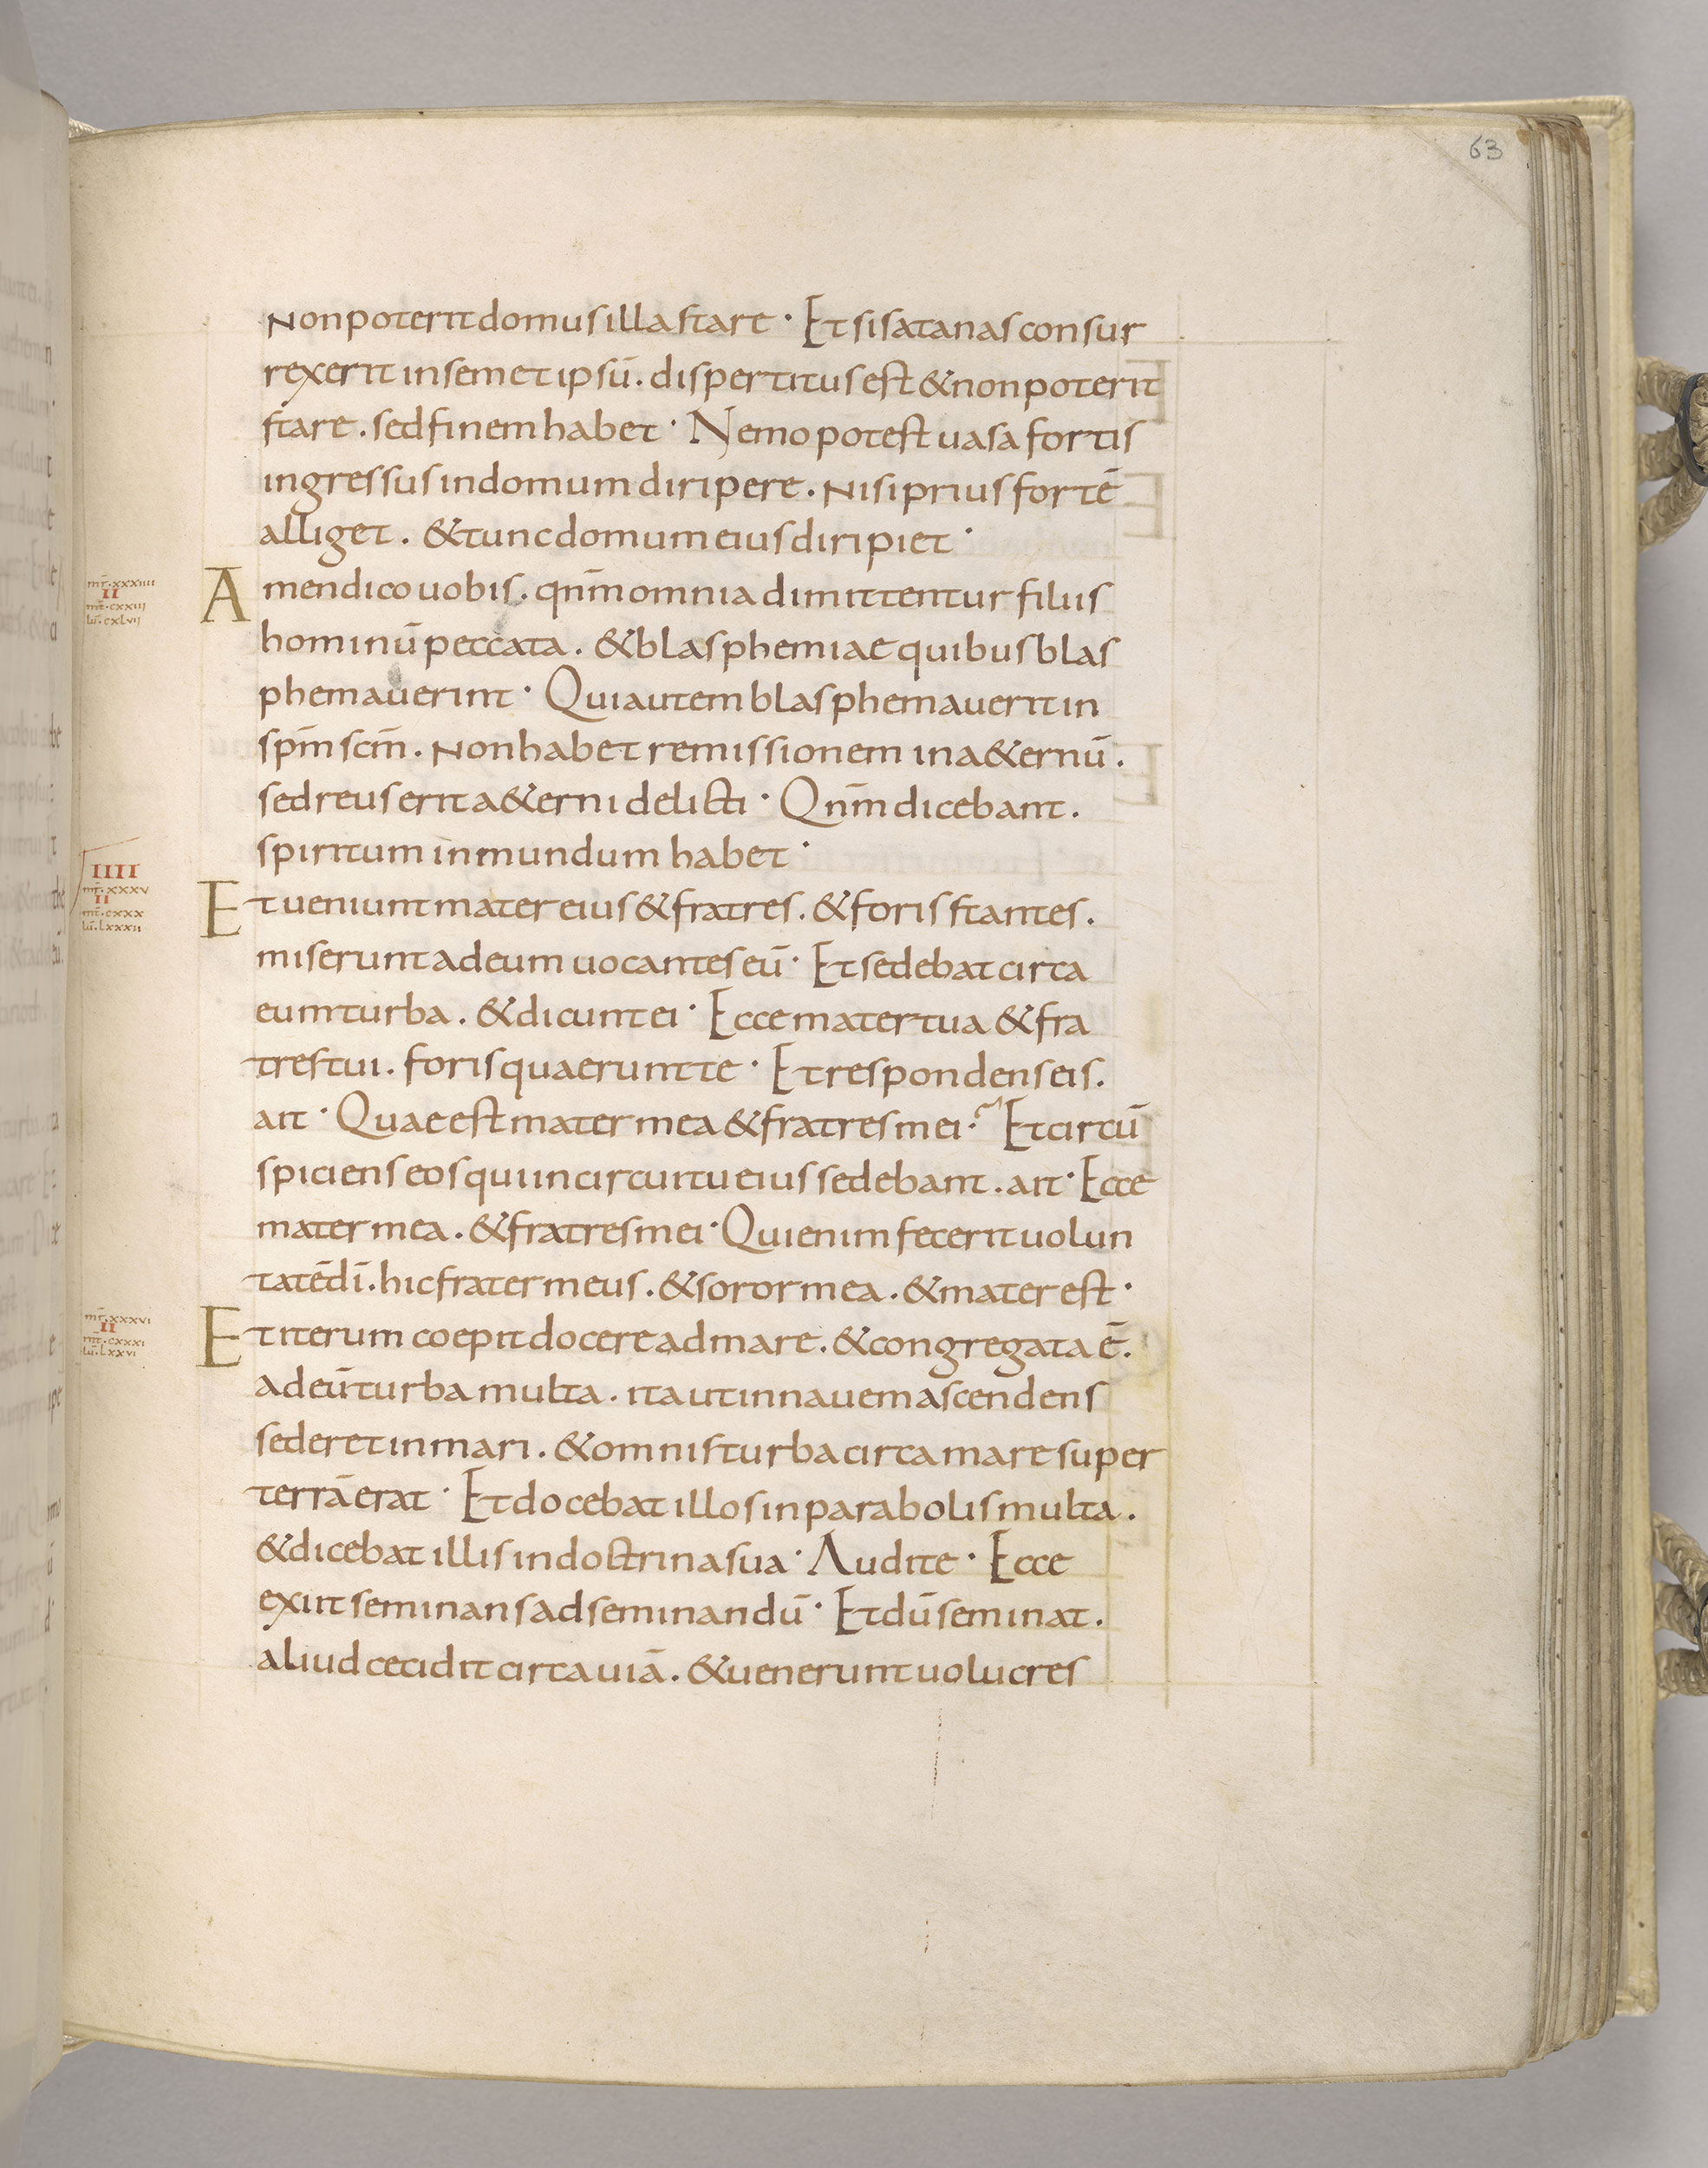 63
Non poterit domus illa stare · Et si satanas consur
rexerit in semet ipsū. dispertitus est & non poterit
stare. sed finem habet · Nemo potest uasa fortis
ingressus in domum diripere. Nisi prius fortē
alliget. & tunc domum eius diripiet ·
mr̄. xxxiiii
II
mt̄. cxxiii
lū. cxlvii
Amen dico uobis. qnm̄ omnia dimittentur filiis
hominū peccata. & blasphemiae quibus blas
phemauerint · Qui autem blasphemauerit in
spm̄ scm̄. Non habet remissionem in a&ernū.
sed reus erit a&erni delicti · Qnm̄ dicebant.
spiritum inmundum habet ·
IIII
mr̄. xxxv
II
mt̄. cxxx
lū. lxxxii
Et ueniunt mater eius & fratres. & foris stantes.
miserunt ad eum uocantes eū · Et sedebat circa
eum turba. & dicunt ei · Ecce mater tua & fra
tres tui. foris quaerunt te · Et respondens eis.
ait · Quae est mater mea & fratres mei? Et circū
spiciens eos qui in circuitu eius sedebant. ait · Ecce
mater mea. & fratres mei · Qui enim fecerit uolun
tatē dī. hic frater meus. & soror mea. & mater est ·
mr̄. xxxvi
II
mt̄. cxxxi
lū. lxxvi
Et iterum coepit docere ad mare. & congregata ē.
ad eū turba multa. ita ut in nauem ascendens
seder& in mari. & omnis turba circa mare super
terrā erat · Et docebat illos in parabolis multa.
& dicebat illis in doctrina sua · Audite · Ecce
exiit seminans ad seminandū · Et dū seminat.
aliud cecidit circa uiā. & uenerunt uolucres